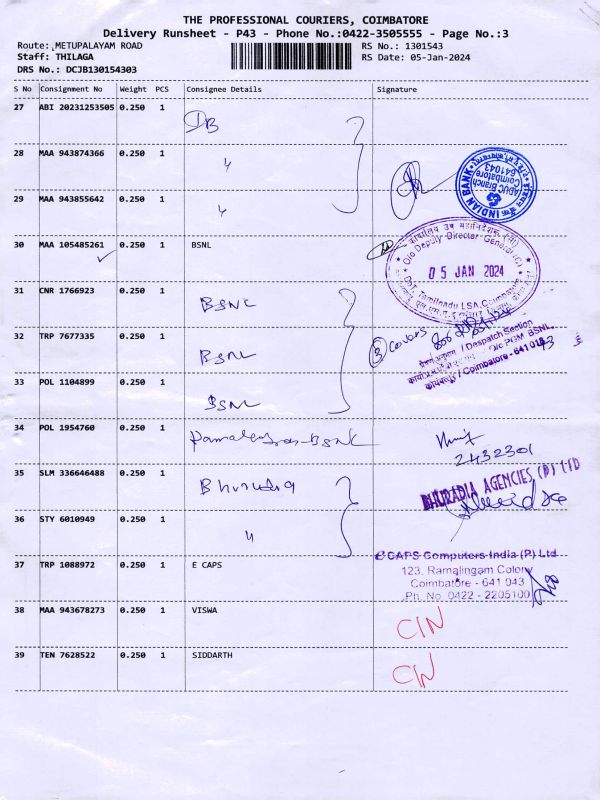 THE PROFESSIONAL COURIERS, COIMBATORE
Delivery Runsheet - P43 - Phone No.:0422-3505555 - Page No.:3
Route: METUPALAYAM ROAD
RS No.: 1301543
Staff: THILAGA
RS Date: 05-Jan-2024
DRS No.: DCJB130154303
S No Consignment No Weight PCS Consignee Details Signature
27 ABI 20231253505 0.250 1 IB
28 MAA 943874366 0.250 1 "
29 MAA 943855642 0.250 1 "
INDIAN BANK
ADUC Branch
Coimbatore
641043
30 MAA 105485261 0.250 1 BSNL
O/o Deputy Director General
05 JAN 2024
DoT, Tamilnadu LSA, Coimbatore
31 CNR 1766923 0.250 1 BSNL
32 TRP 7677335 0.250 1 BSNL
3 Covers
/ Despatch Section
O/o PGM BSNL
/ Coimbatore - 641 043
33 POL 1104899 0.250 1 BSNL
34 POL 1954760 0.250 1 BSNL
2432301
35 SLM 336646488 0.250 1 Bhuradia
BHURADIA AGENCIES (P) LTD
36 STY 6010949 0.250 1 "
37 TRP 1088972 0.250 1 E CAPS
eCAPS Computers India (P) Ltd
123, Ramalingam Colony
Coimbatore - 641 043
Ph. No. 0422 - 2205100
38 MAA 943678273 0.250 1 VISWA C/N
39 TEN 7628522 0.250 1 SIDDARTH C/N